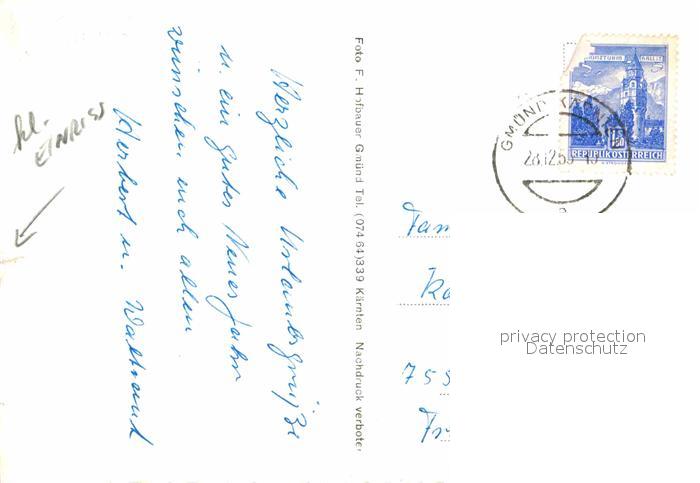 Herzliche Urlaubsgrüße
u. ein gutes Neues Jahr
wünschen euch allen
Herbert u. Waltraud
kl.
EINRISS
Foto F. Hofbauer Gmünd Tel. (074 64)339 Kärnten Nachdruck verboten
MÜNZTURM HALL
1.50
REPUBLIK ÖSTERREICH
GMÜND
28.12.59
Fam
Ka
755
Fr
privacy protection
Datenschutz